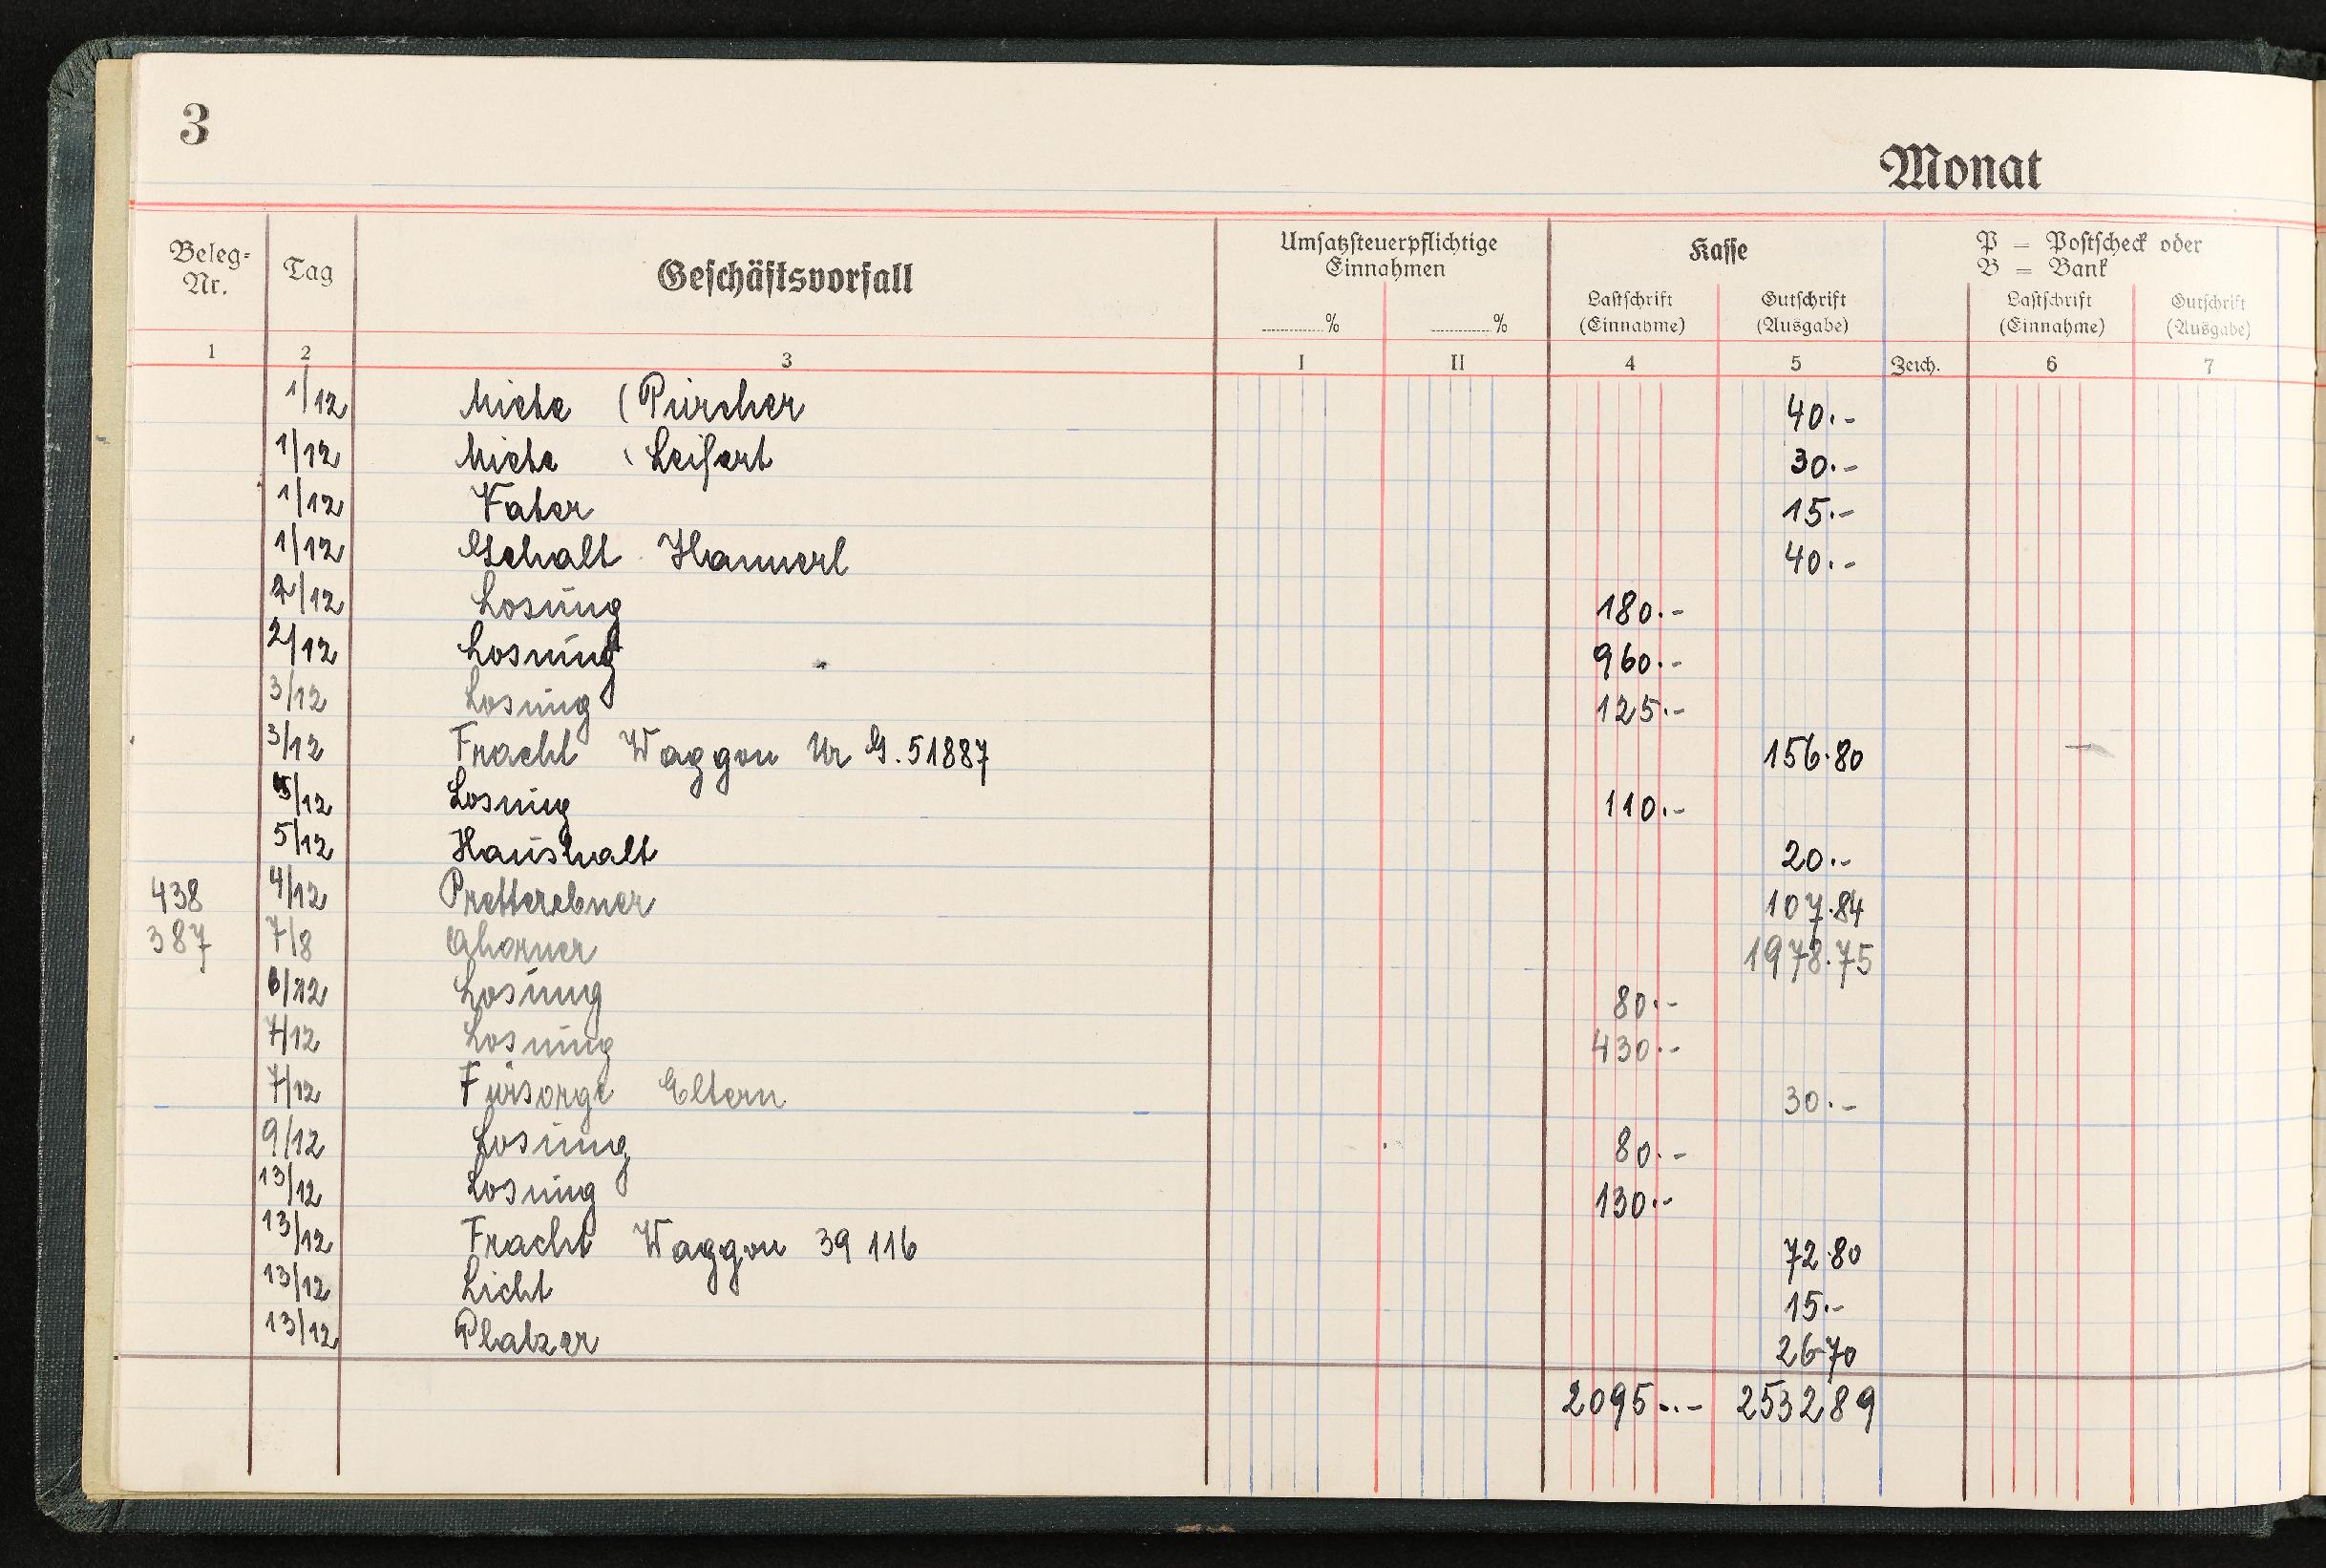 3
Monat
Beleg-Nr. Tag Geschäftsvorfall Umsatzsteuerpflichtige Einnahmen Kasse P = Postscheck oder B = Bank
% % Lastschrift (Einnahme) Gutschrift (Ausgabe) Lastschrift (Einnahme) Gutschrift (Ausgabe)
1 2 3 I II 4 5 Zeich. 6 7
1/12 Miete (Pürcher 40.-
1/12 Miete ( Leifert 30.-
1/12 Vater 15.-
1/12 Gehalt Hannerl 40.-
2/12 Losung 180.-
2/12 Losung 960.-
3/12 Losung 125.-
3/12 Fracht Waggon Nr G.51887 156.80
5/12 Losung 110.-
5/12 Haushalt 20.-
438 4/12 Pretterebner 107.84
387 7/8 Ahorner 1978.75
6/12 Losung 80.-
7/12 Losung 430.-
7/12 Fürsorge Eltern 30.-
9/12 Losung 80.-
13/12 Losung 130.-
13/12 Fracht Waggon 39 116 72.80
13/12 Licht 15.-
13/12 Platzer 26.70
2095.- 2532 89